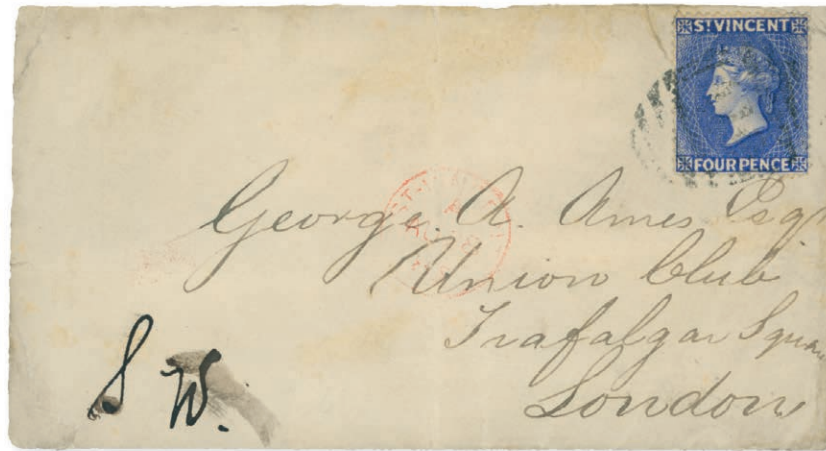 ST VINCENT
FOUR PENCE
George. A. Ames Esq
Union Club
Trafalgar Square
London
S W.